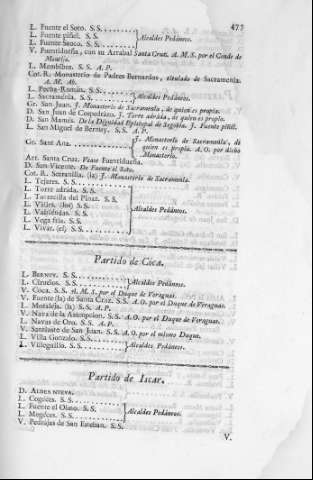 477
L. Fuente el Soto. S. S.
L. Fuente piñel. S. S.
L. Fuente Sauco. S. S.
Alcaldes Pedáneos.
V. Fuentidueña, con su Arrabal Santa Cruz. A. M. S. por el Conde de
Montijo.
L. Membibre. S. S. A. P.
Cot. R. Monasterio de Padres Bernardos, titulado de Sacramenia.
A. M. Ab.
L. Pecha-Román. S. S.
L. Sacraménia. S. S.
Alcaldes Pedáneos.
Gr. San Juan. J. Monasterio de Sacramenia, de quien es propia.
D. San Juan de Cespedráno. J. Torre adráda, de quien es propio.
D. San Mamés. De la Dignidad Episcopal de Segovia. J. Fuente piñél.
L. San Miguel de Bernuy. S. S. A. P.
Gr. Santa Ana.
J. Monasterio de Sacramenia, de
quien es propia. A. O. por dicho
Monasterio.
Arr. Santa Cruz. Vease Fuentidueña.
D. San Vicente. De Fuente el Soto.
Cot. R. Serranilla. (la) J. Monasterio de Sacramenia.
L. Tejares. S. S.
L. Torre adráda. S. S.
L. Torrecilla del Pinar. S. S.
L. Valles. (los) S. S.
L. Valtiendas. S. S.
L. Vega fria. S. S.
L. Vivar. (el) S. S.
Alcaldes Pedáneos.
Partido de Coca.
L. BERNUY. S. S.
L. Ciruelos. S. S.
Alcaldes Pedáneos.
V. Coca. S. S. A. M. S. por el Duque de Veraguas.
V. Fuente (la) de Santa Cruz. S. S. A. O. por el Duque de Veraguas.
L. Moraleja. (la) S. S. A. P.
V. Nava de la Asuncpion. S. S. A. O. por el Duque de Veraguas.
L. Navas de Oro. S. S. A. P.
V. Santiuste de San Juan. S. S. A. O. por el mismo Duque.
L. Villa Gonzalo. S. S.
L. Villeguillo. S. S.
Alcaldes Pedáneos.
Partido de Iscar.
D. ALDEA NUEVA.
L. Cogéces. S. S.
L. Fuente el Olmo. S. S.
L. Megéces. S. S.
Alcaldes Pedáneos.
V. Pedrajas de San Esteban. S. S.
V.